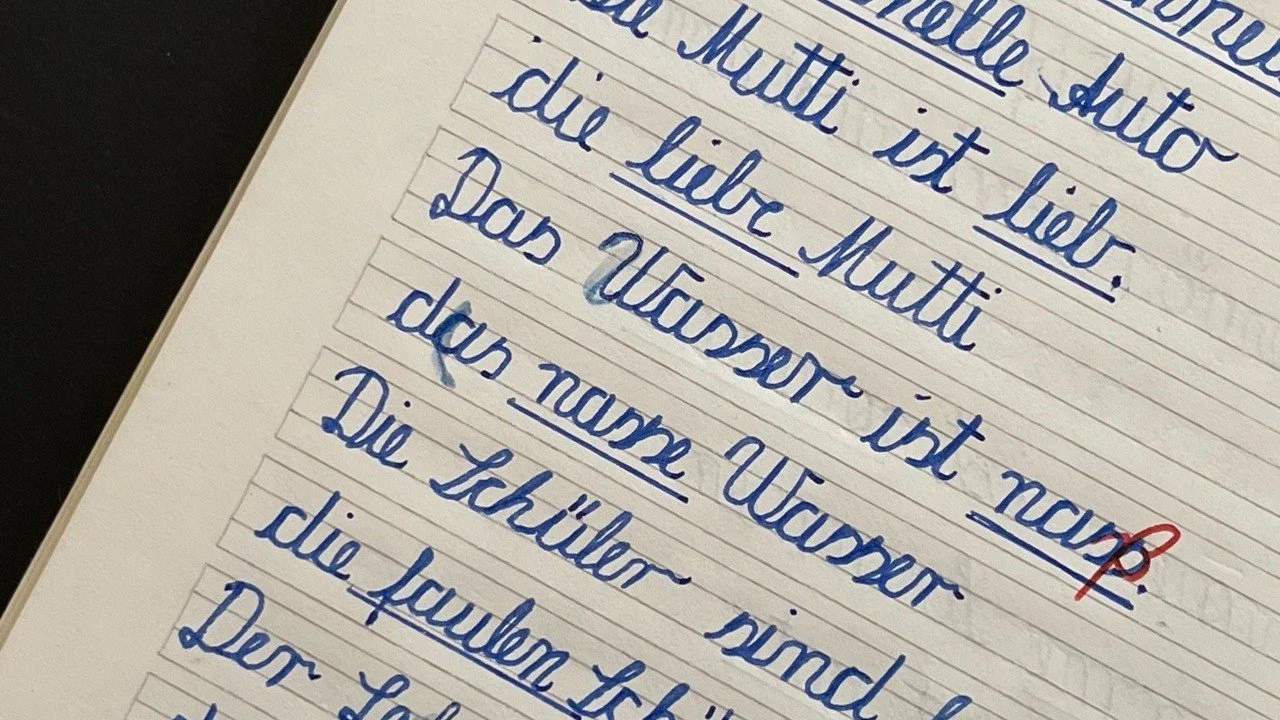 Auto
Mutti ist lieb.
die liebe Mutti
Das Wasser ist naß.
das nasse Wasser
Die Schüler sind
die faulen
Der